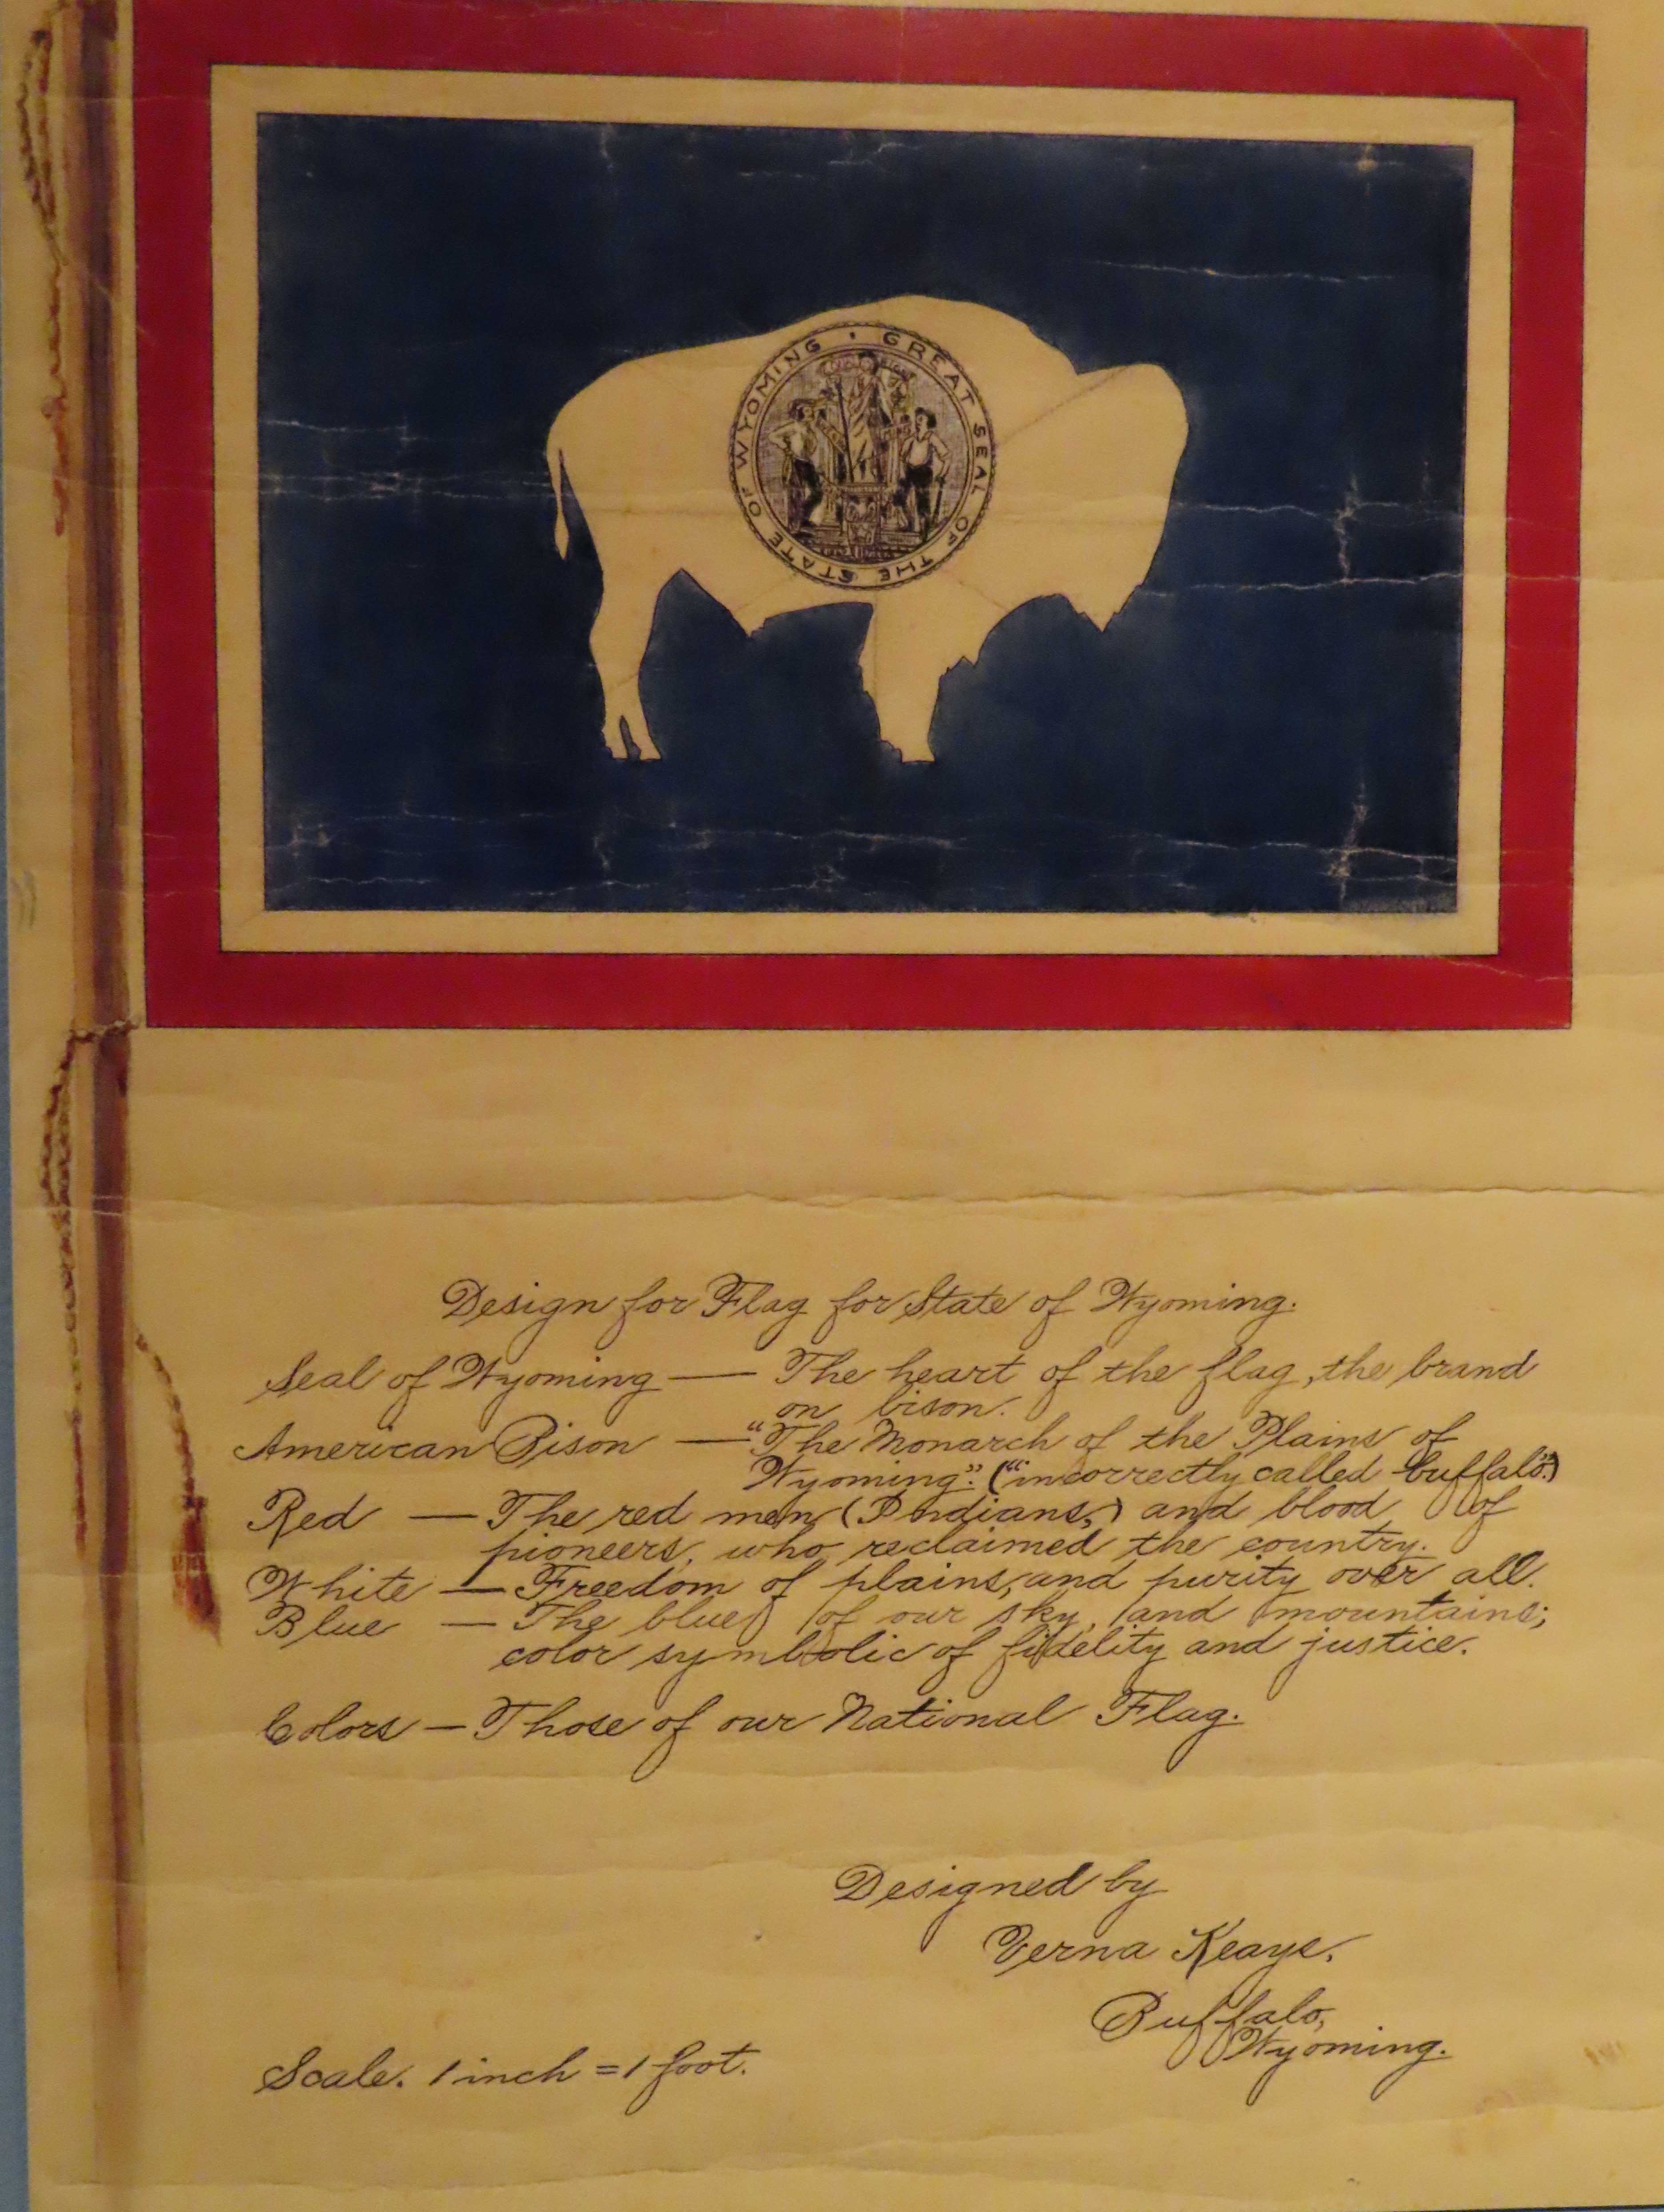 GREAT SEAL OF THE STATE OF WYOMING
Design for Flag for State of Wyoming.
Seal of Wyoming — The heart of the flag, the brand
on bison.
American Bison — "The Monarch of the Plains of
Wyoming." ("incorrectly called buffalo".)
Red — The red men (Indians,) and blood of
pioneers, who reclaimed the country.
White — Freedom of plains, and purity over all.
Blue — The blue of our sky, and mountains;
color symbolic of fidelity and justice.
Colors — Those of our National Flag.
Designed by
Verna Keays,
Buffalo,
Wyoming.
Scale. 1 inch = 1 foot.